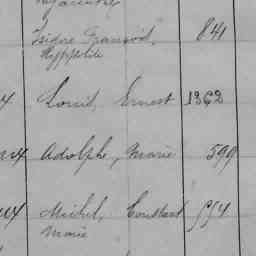 Isidore François, 841
Hyppolite
x Louis, Ernest 1262
Adolphe, Marie 599
Michel, Constant 554
Marie